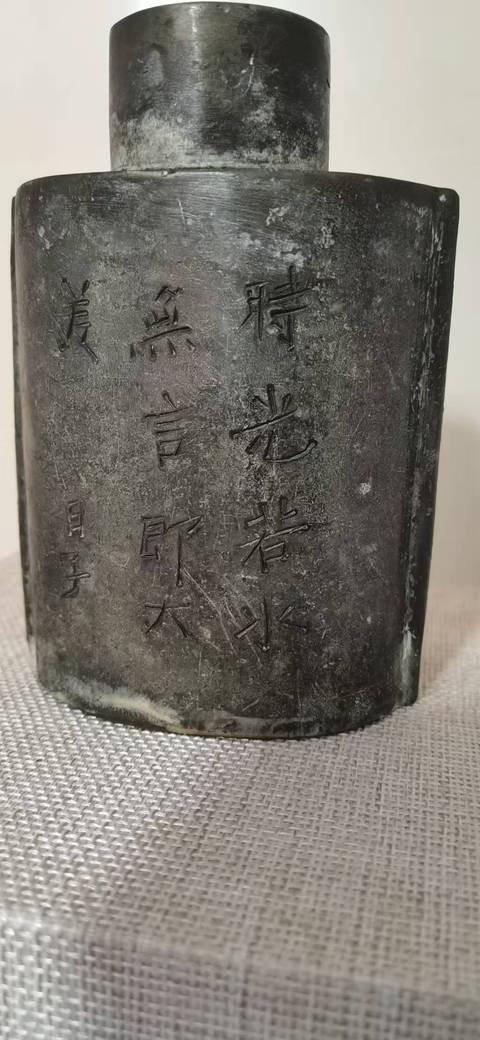 時光若水
無言即大
美
月子